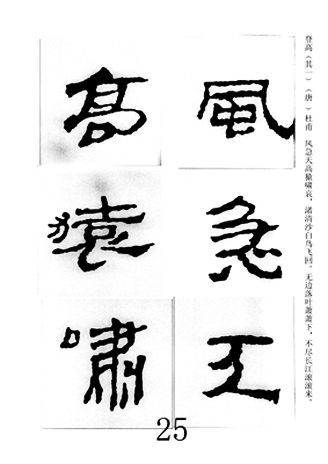 登高（其一）（唐）杜甫 风急天高猿啸哀，渚清沙白鸟飞回。无边落叶萧萧下，不尽长江滚滚来。
風急天
高猿嘯
25